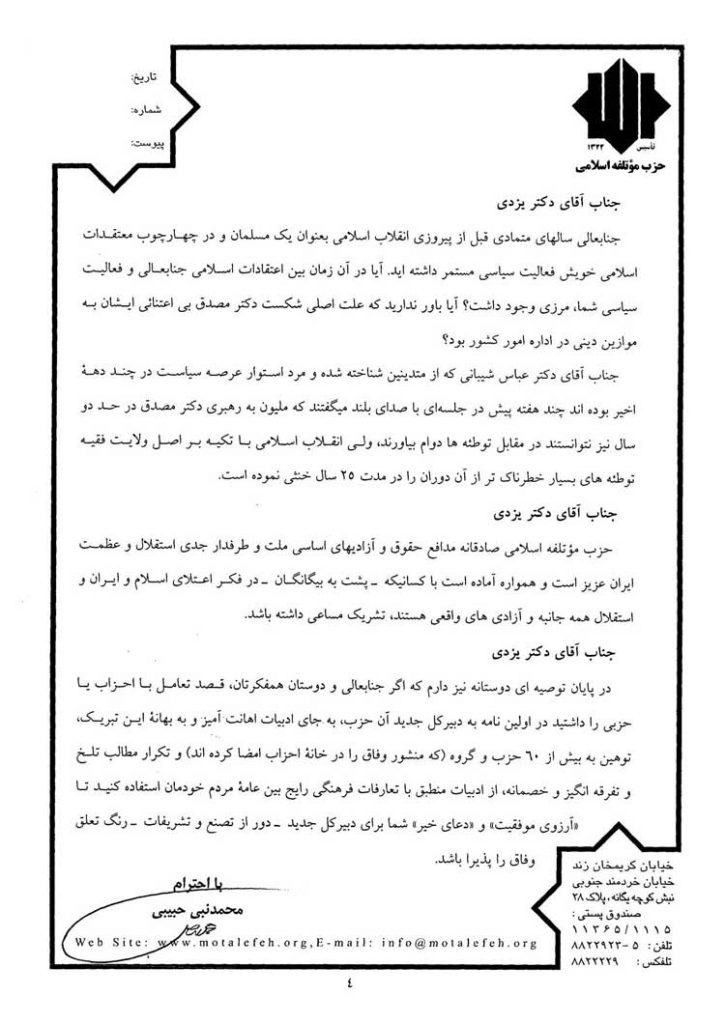 تاریخ:
شماره:
پیوست:
تأسیس ۱۳۴۲
حزب مؤتلفه اسلامی
جناب آقای دکتر یزدی
جنابعالی سالهای متمادی قبل از پیروزی انقلاب اسلامی بعنوان یک مسلمان و در چهارچوب معتقدات
اسلامی خویش فعالیت سیاسی مستمر داشته اید. آیا در آن زمان بین اعتقادات اسلامی جنابعالی و فعالیت
سیاسی شما، مرزی وجود داشت؟ آیا باور ندارید که علت اصلی شکست دکتر مصدق بی اعتنائی ایشان به
موازین دینی در اداره امور کشور بود؟
جناب آقای دکتر عباس شیبانی که از متدینین شناخته شده و مرد استوار عرصه سیاست در چند دههٔ
اخیر بوده اند چند هفته پیش در جلسه‌ای با صدای بلند میگفتند که ملیون به رهبری دکتر مصدق در حد دو
سال نیز نتوانستند در مقابل توطئه ها دوام بیاورند، ولی انقلاب اسلامی با تکیه بر اصل ولایت فقیه
توطئه های بسیار خطرناک تر از آن دوران را در مدت ۲۵ سال خنثی نموده است.
جناب آقای دکتر یزدی
حزب مؤتلفه اسلامی صادقانه مدافع حقوق و آزادیهای اساسی ملت و طرفدار جدی استقلال و عظمت
ایران عزیز است و همواره آماده است با کسانیکه ـ پشت به بیگانگان ـ در فکر اعتلای اسلام و ایران و
استقلال همه جانبه و آزادی های واقعی هستند، تشریک مساعی داشته باشد.
جناب آقای دکتر یزدی
در پایان توصیه ای دوستانه نیز دارم که اگر جنابعالی و دوستان همفکرتان، قصد تعامل با احزاب یا
حزبی را داشتید در اولین نامه به دبیرکل جدید آن حزب، به جای ادبیات اهانت آمیز و به بهانهٔ این تبریک،
توهین به بیش از ۶۰ حزب و گروه (که منشور وفاق را در خانهٔ احزاب امضا کرده اند) و تکرار مطالب تلخ
و تفرقه انگیز و خصمانه، از ادبیات منطبق با تعارفات فرهنگی رایج بین عامهٔ مردم خودمان استفاده کنید تا
«آرزوی موفقیت» و «دعای خیر» شما برای دبیرکل جدید ـ دور از تصنع و تشریفات ـ رنگ تعلق
وفاق را پذیرا باشد.
با احترام
محمدنبی حبیبی
خیابان کریمخان زند
خیابان خردمند جنوبی
نبش کوچه یگانه، پلاک ۲۸
صندوق پستی:
۱۱۳۶۵/۱۱۱۵
تلفن: ۵-۸۸۲۲۹۲۳
تلفکس: ۸۸۲۲۲۲۹
Web Site: www.motalefeh.org,E-mail: info@motalefeh.org
۴